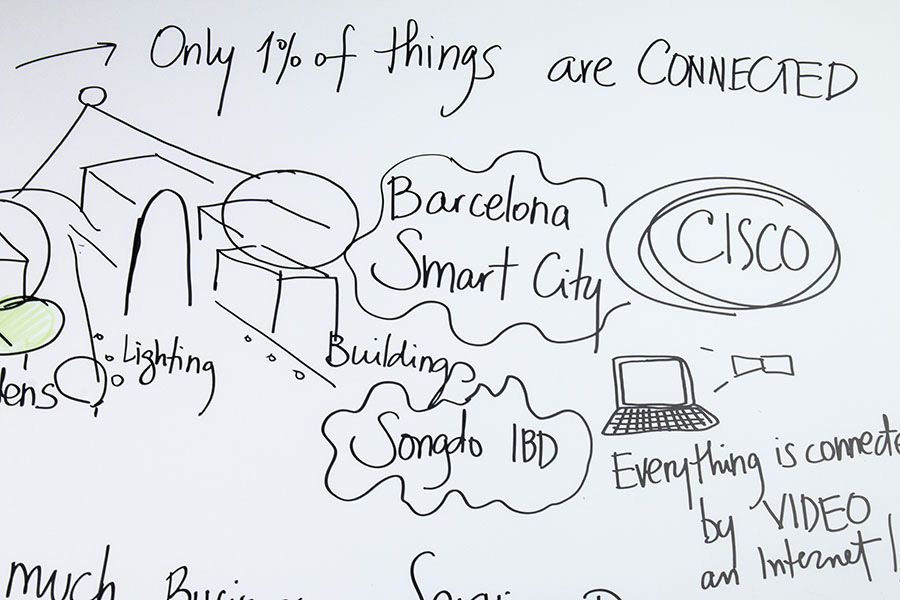 Only 1% of things are CONNECTED
Barcelona
Smart City
CISCO
Lighting
Buildings
Songdo IBD
Everything is connecte
by VIDEO
an Internet!
much